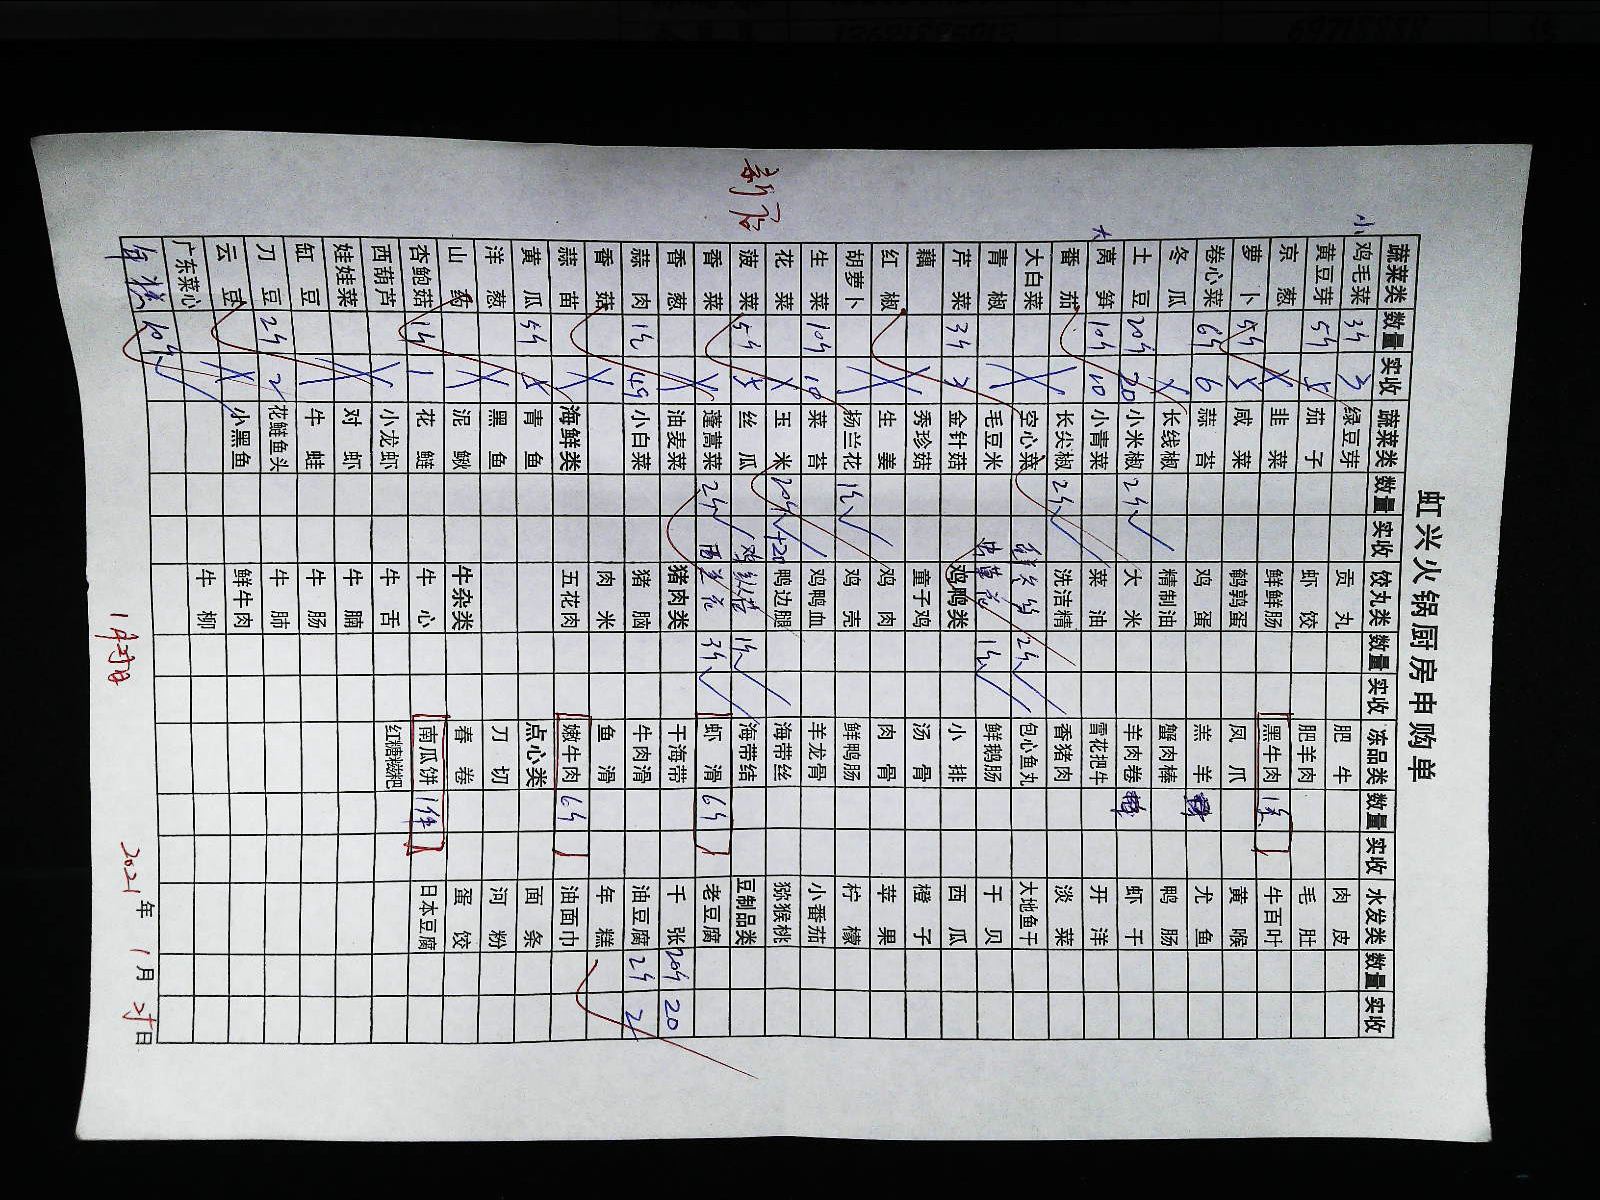 虹兴火锅厨房申购单
蔬菜类 数量 实收 蔬菜类 数量 实收 饺丸类 数量 实收 冻品类 数量 实收 水发类 数量 实收
小 鸡毛菜 3斤 3 绿豆芽 贡丸 肥牛 肉皮
黄豆芽 5斤 5 茄子 虾饺 肥羊肉 毛肚
京葱 韭菜 鲜鲜肠 黑牛肉 牛百叶
萝卜 5斤 5 咸菜 鹌鹑蛋 凤爪 黄喉
卷心菜 6斤 6 蒜苔 鸡蛋 羔羊 尤鱼
冬瓜 长线椒 精制油 蟹肉棒 鸭肠
土豆 20斤 20 小米椒 2斤 大米 羊肉卷 虾干
大 莴笋 10斤 10 小青菜 菜油 雪花把牛 开洋
番茄 长尖椒 2斤 洗洁精 香猪肉 淡菜
大白菜 空心菜 2斤 包心鱼丸 大地鱼干
青椒 毛豆米 1斤 鲜鹅肠 干贝
芹菜 3斤 3 金针菇 鸡鸭类 小排 西瓜
藕 秀珍菇 童子鸡 汤骨 橙子
红椒 生姜 鸡肉 肉骨 苹果
胡萝卜 扬兰花 1斤 鸡壳 鲜鸭肠 柠檬
生菜 10斤 10 菜苔 鸡鸭血 羊龙骨 小番茄
花菜 玉米 20斤 +20 鸭边腿 海带丝 猕猴桃
新店
菠菜 5斤 5 丝瓜 1斤 海带结 豆制品类
香菜 蓬蒿菜 2斤 西兰花 3斤 虾滑 6斤 老豆腐
香葱 油麦菜 猪肉类 干海带 千张 20斤 20
蒜肉 1斤 小白菜 猪脑 牛肉滑 油豆腐 2斤 2
香菇 肉米 鱼滑 年糕
蒜苗 海鲜类 五花肉 嫩牛肉 6斤 油面巾
黄瓜 5斤 5 青鱼 点心类 面条
洋葱 黑鱼 刀切 河粉
山药 泥鳅 牛杂类 春卷 蛋饺
杏鲍菇 1斤 1 花鲢 牛心 南瓜饼 1件 日本豆腐
西葫芦 小龙虾 牛舌 红糖糍粑
娃娃菜 对虾 牛腩
缸豆 牛蛙 牛肠
刀豆 2斤 2 花鲢鱼头 牛肺
云豆 小黑鱼 鲜牛肉
广东菜心 牛柳
10斤
2021年1月25日